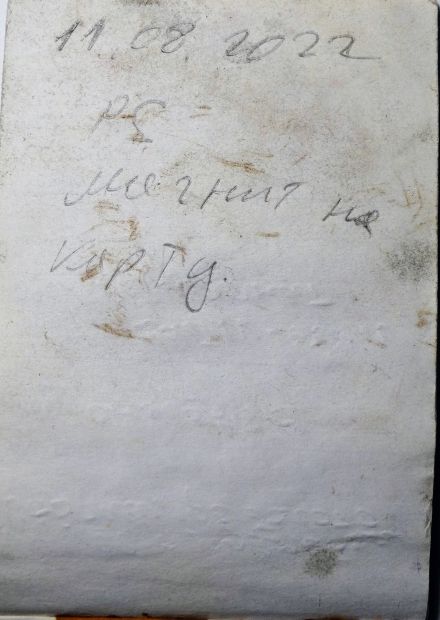 11 08 2022
PS
Магнит на
карту.